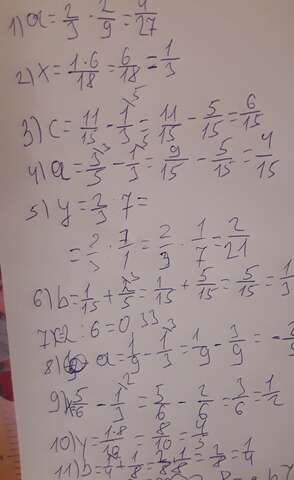 1) a = 2/3 · 2/9 = 4/27
2) x = 1·6/18 = 6/18 = 1/3
3) c = 11/15 - 1/3 = 11/15 - 5/15 = 6/15
4) a = 3/5 - 1/3 = 9/15 - 5/15 = 4/15
5) y = 2/3 : 7 =
= 2/3 : 7/1 = 2/3 · 1/7 = 2/21
6) b = 1/15 + 1/5 = 1/15 + 5/15 = 5/15 = 1/3
7) 2 : 6 = 0 33
8) a = 1/9 - 1/3 = 1/9 - 3/9 = -
9) 5/6 - 1/3 = 5/6 - 2/6 = 3/6 = 1/2
10) y = 1·8/10 = 8/10 = 4/5
11) b = 1/8 = 1/4